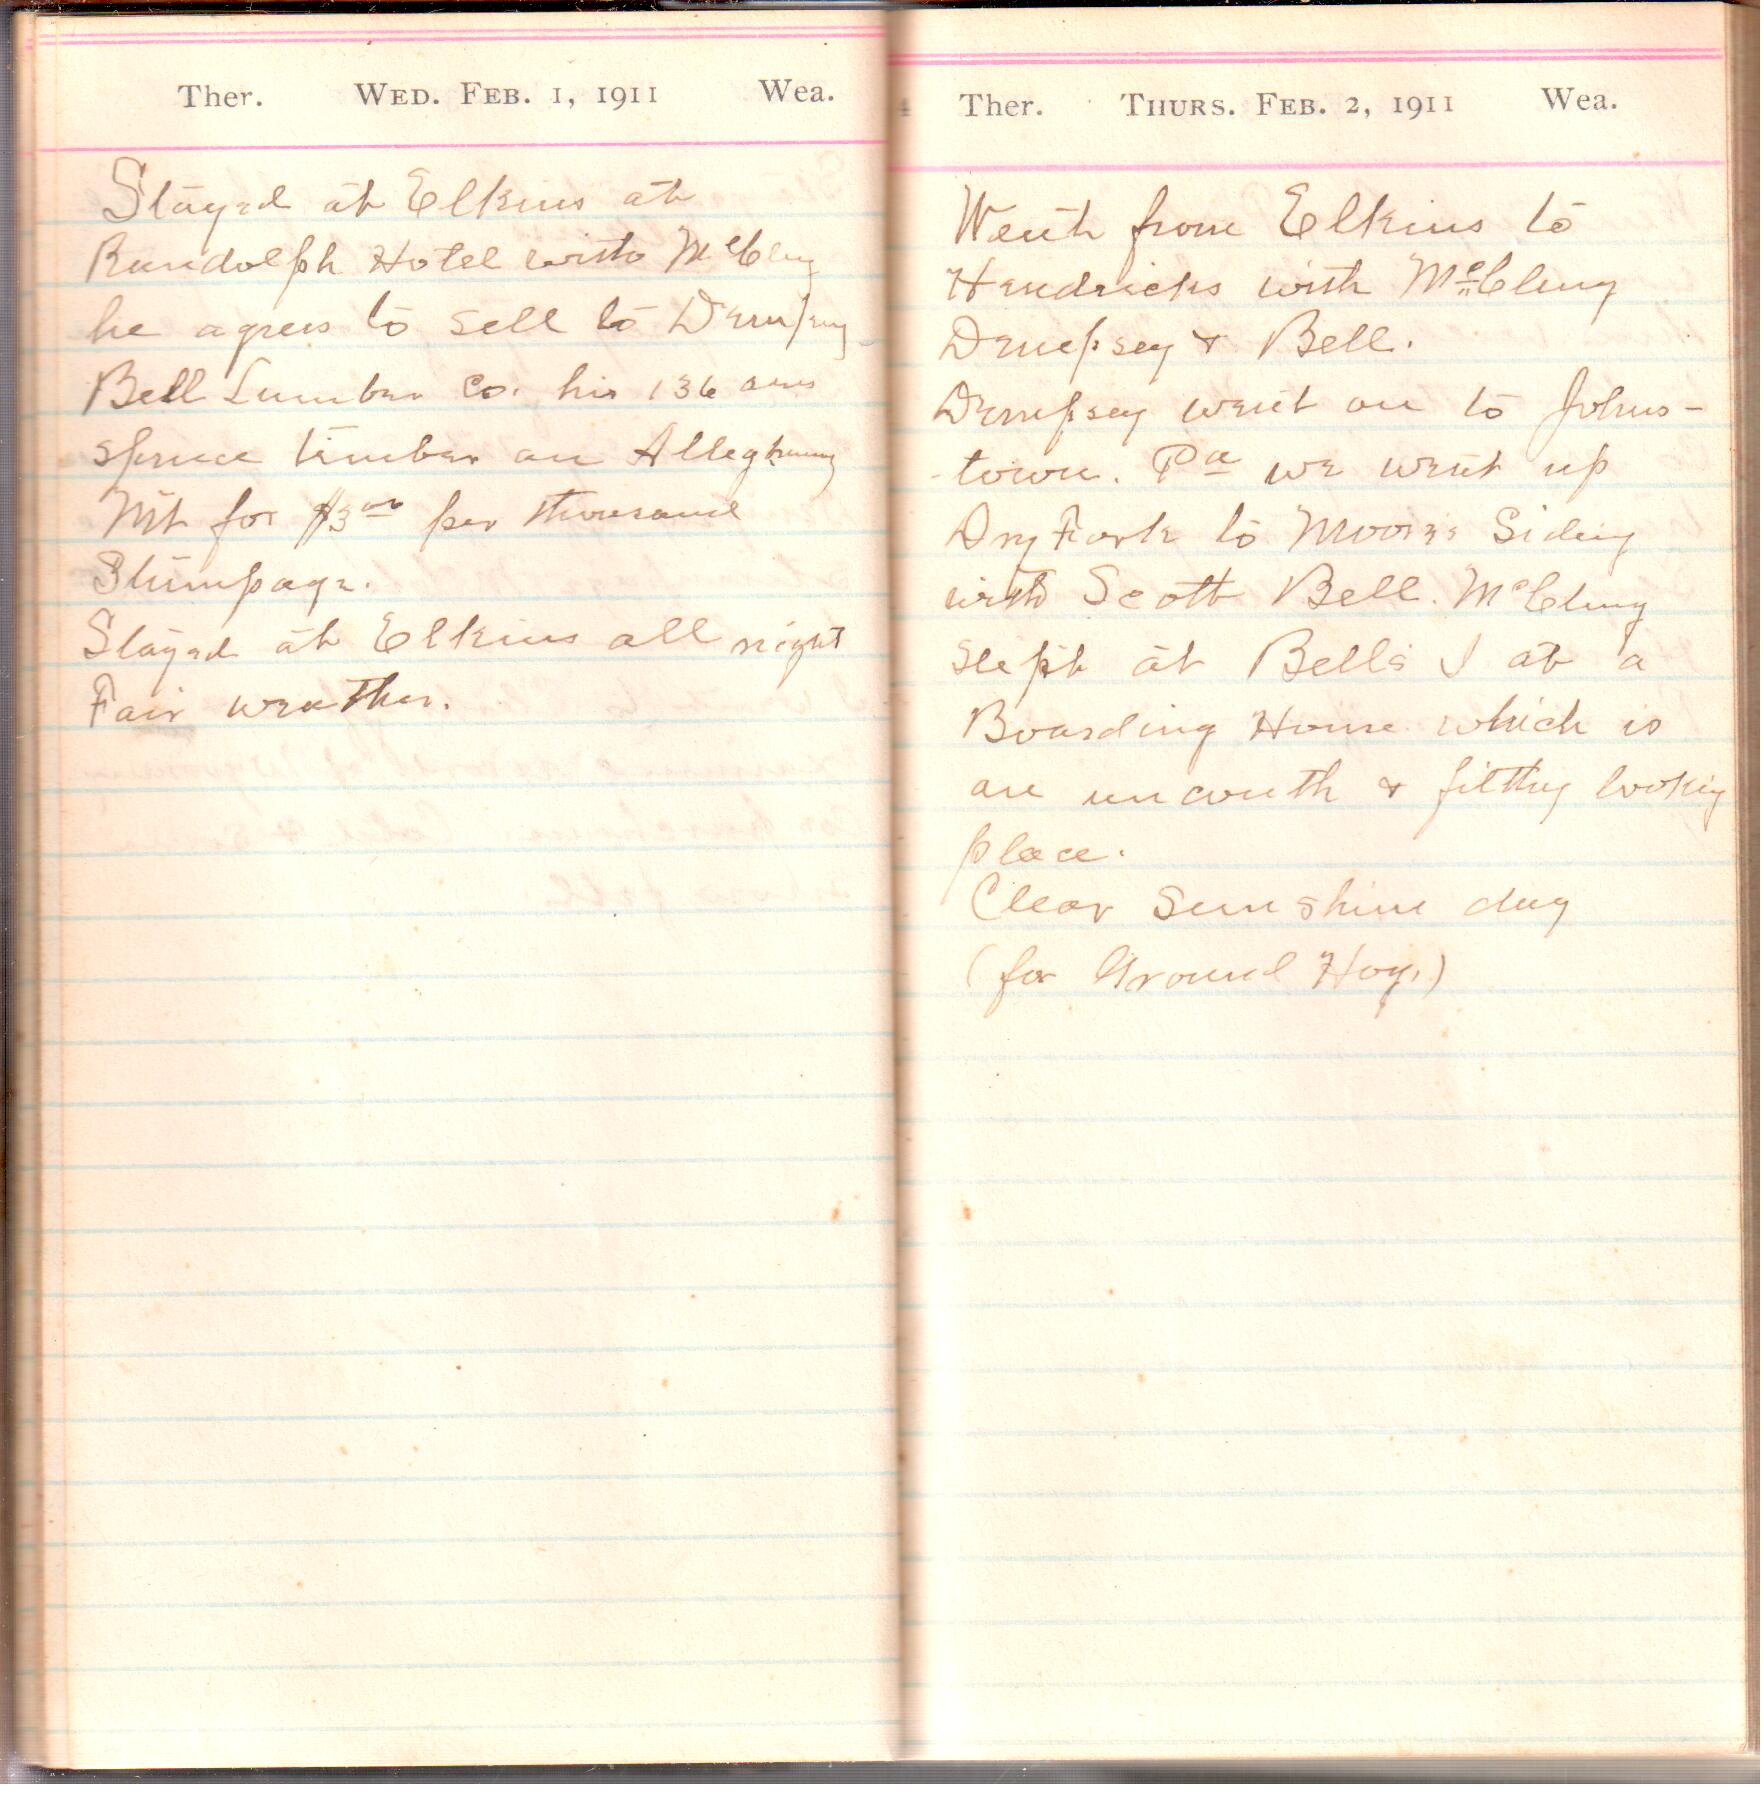 Ther. WED. FEB. 1, 1911 Wea.
Stayed at Elkins at
Randolph Hotel with McClung
he agrees to sell to Dempsey
Bell Lumber Co. his 136 acres
spruce timber on Alleghany
Mt for $3.00 per thousand
Stumpage.
Stayed at Elkins all night
Fair weather.
Ther. THURS. FEB. 2, 1911 Wea.
Went from Elkins to
Hendricks with McClung
Dempsey & Bell.
Dempsey went on to Johns-
-town. Pa we went up
Dry Fork to Moores Siding
with Scott Bell. McClung
slept at Bells I at a
Boarding House which is
an uncouth & filthy looking
place.
Clear Sunshine day
(for Ground Hog.)